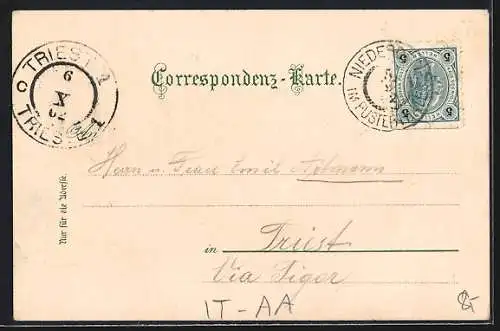 TRIEST 2
6
X
02
TRIEST
Correspondenz-Karte.
NIEDER
IM PUSTER
5 5
5 5
Nur für die Adresse.
Herrn u. Frau Emil
in Triest
Via Tigor
IT-AA